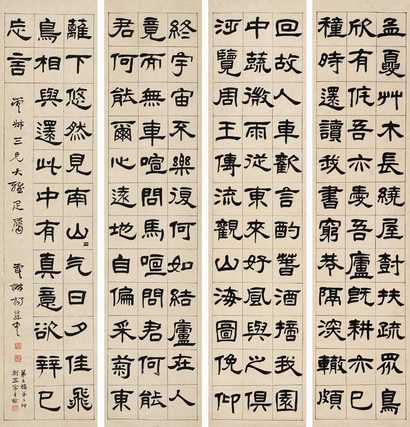 孟夏艸木長繞屋尌扶疏眾鳥
欣有侂吾亦愛吾廬既耕亦已
穜時還讀我書窮巷隔深轍頗
回故人車歡言酌萅酒擿我園
中蔬微雨從東來好風與之俱
汎覽周王傳流觀山海圖俛仰
終宇宙不樂復何如結廬在人
竟而無車喧問馬喧問君何能
君何能爾心遠地自偏采菊東
離下悠然見南山气日夕佳飛
鳥相與還此中有真意欲辨已
忘言
三兄大雅